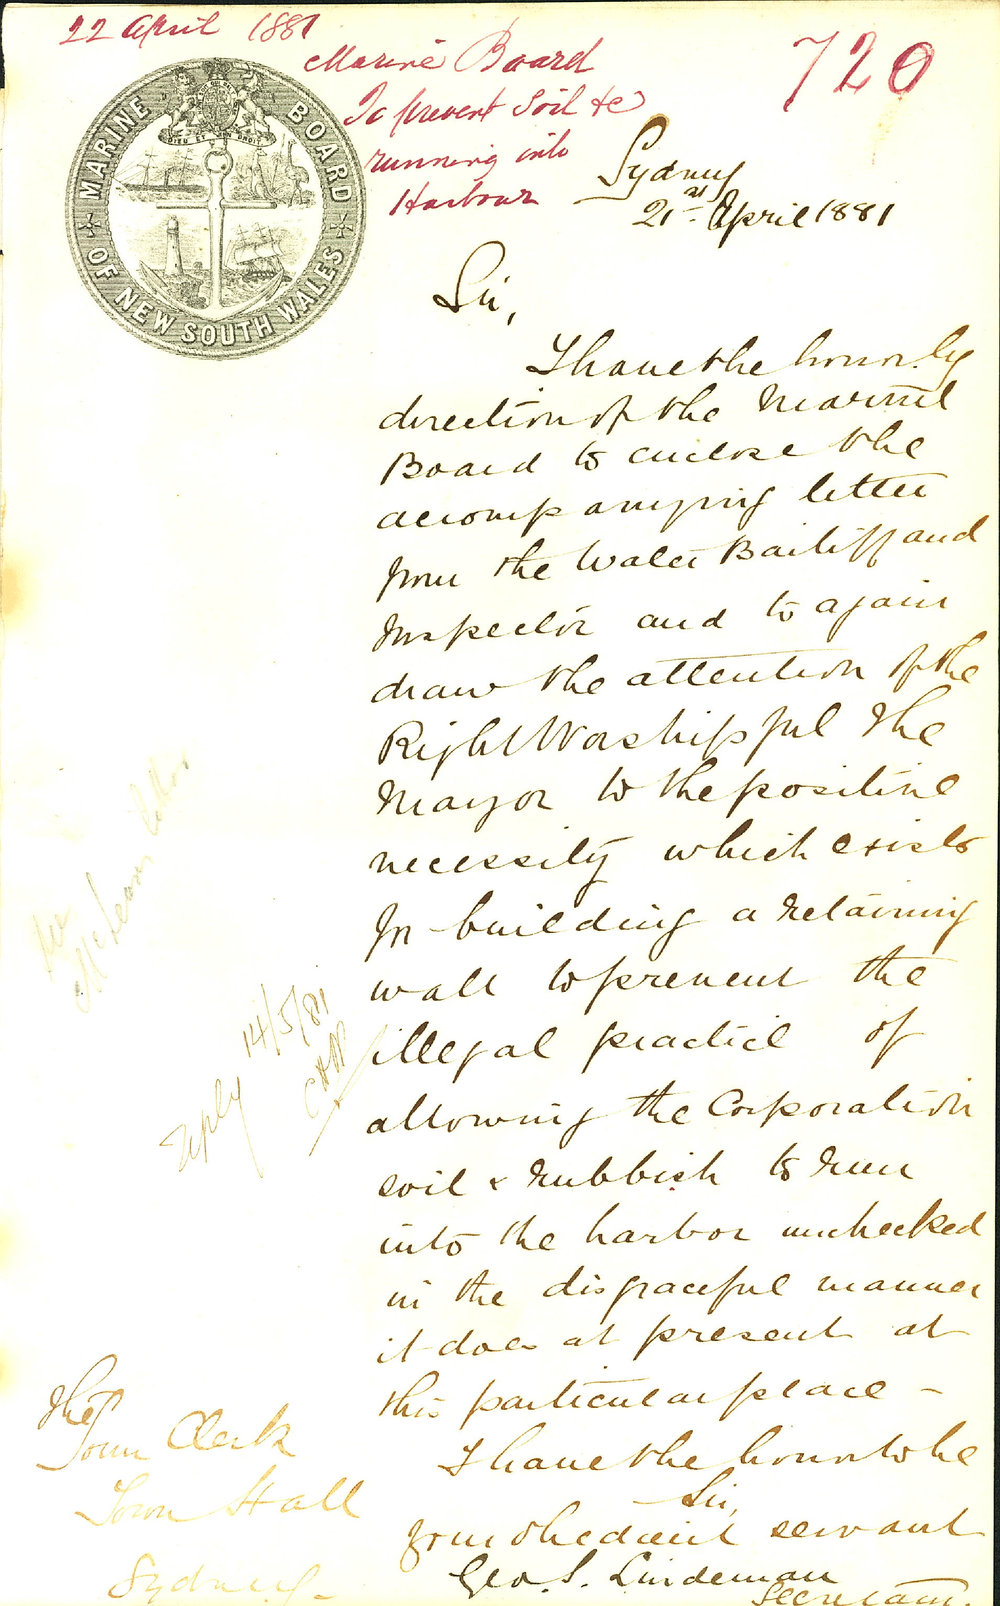 22 April 1881
Marine Board
To prevent Soil &c
running into
Harbour
720
MARINE BOARD OF NEW SOUTH WALES
DIEU ET MON DROIT
Sydney
21st April 1881
Sir,
I have the honor by
direction of the Marine
Board to enclose the
accompanying letter
from the Water Bailiff and
Inspector and to again
draw the attention of the
Right Worshipful the
Mayor to the positive
necessity which exists
in building a retaining
wall to prevent the
illegal practice of
allowing the Corporation
soil & rubbish to run
into the harbor unchecked
in the disgraceful manner
it does at present at
this particular place -
I have the honor to be
Sir,
Your obedient servant
Geo. S. Lindeman
Secretary.
McLean
Reply 14/5/81
The
Town Clerk
Town Hall
Sydney -